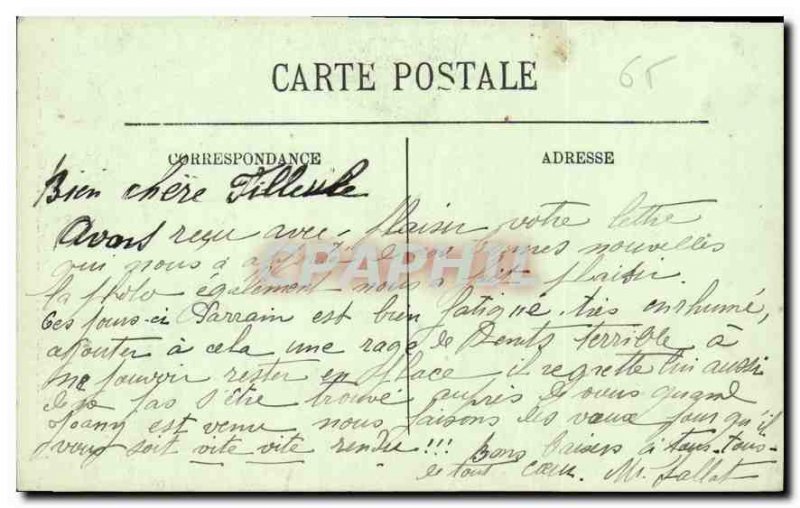 CARTE POSTALE
65
CORRESPONDANCE
ADRESSE
Bien chère Filleule
Avons reçu avec plaisir votre lettre
qui nous a de nouvelles
la photo également nous a fait plaisir.
Ces jours-ci Parrain est bien fatigué, très enrhumé,
ajouter à cela une rage de Dents terrible à
ne pouvoir rester en place il regrette lui aussi
de ne pas s'être trouvé auprès de vous quand
Joany est venu nous faisons des vœux pour qu'il
vous soit vite vite rendu !!! Bons baisers à tous tous
de tout cœur. 
CPAPHIL